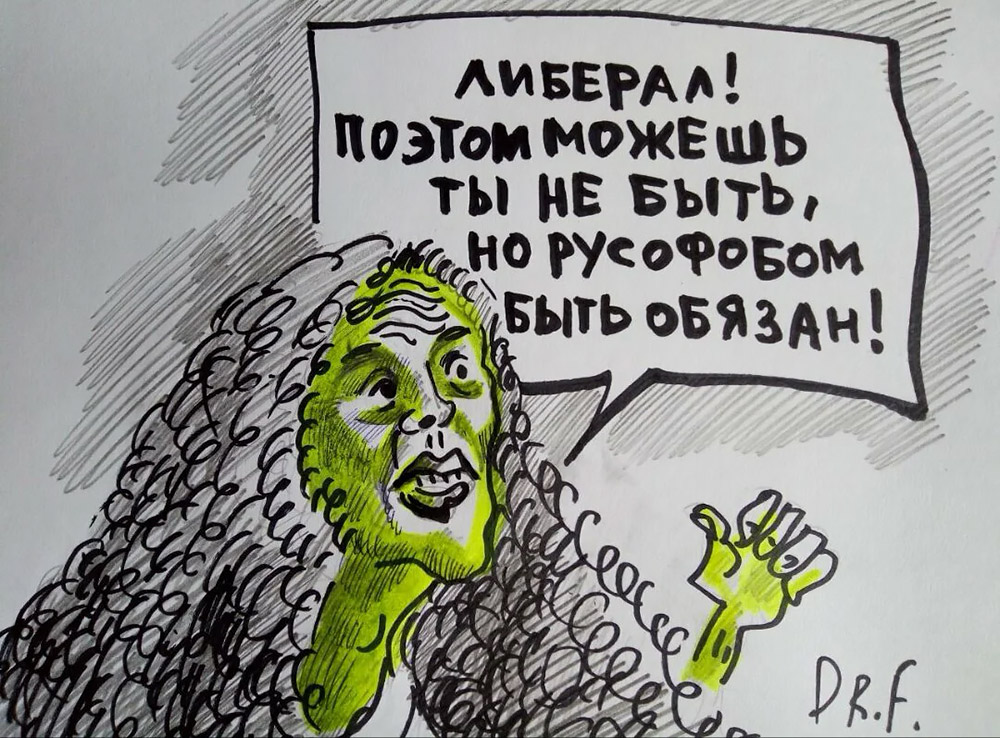 ЛИБЕРАЛ!
ПОЭТОМ МОЖЕШЬ
ТЫ НЕ БЫТЬ,
НО РУСОФОБОМ
БЫТЬ ОБЯЗАН!
DR.F.